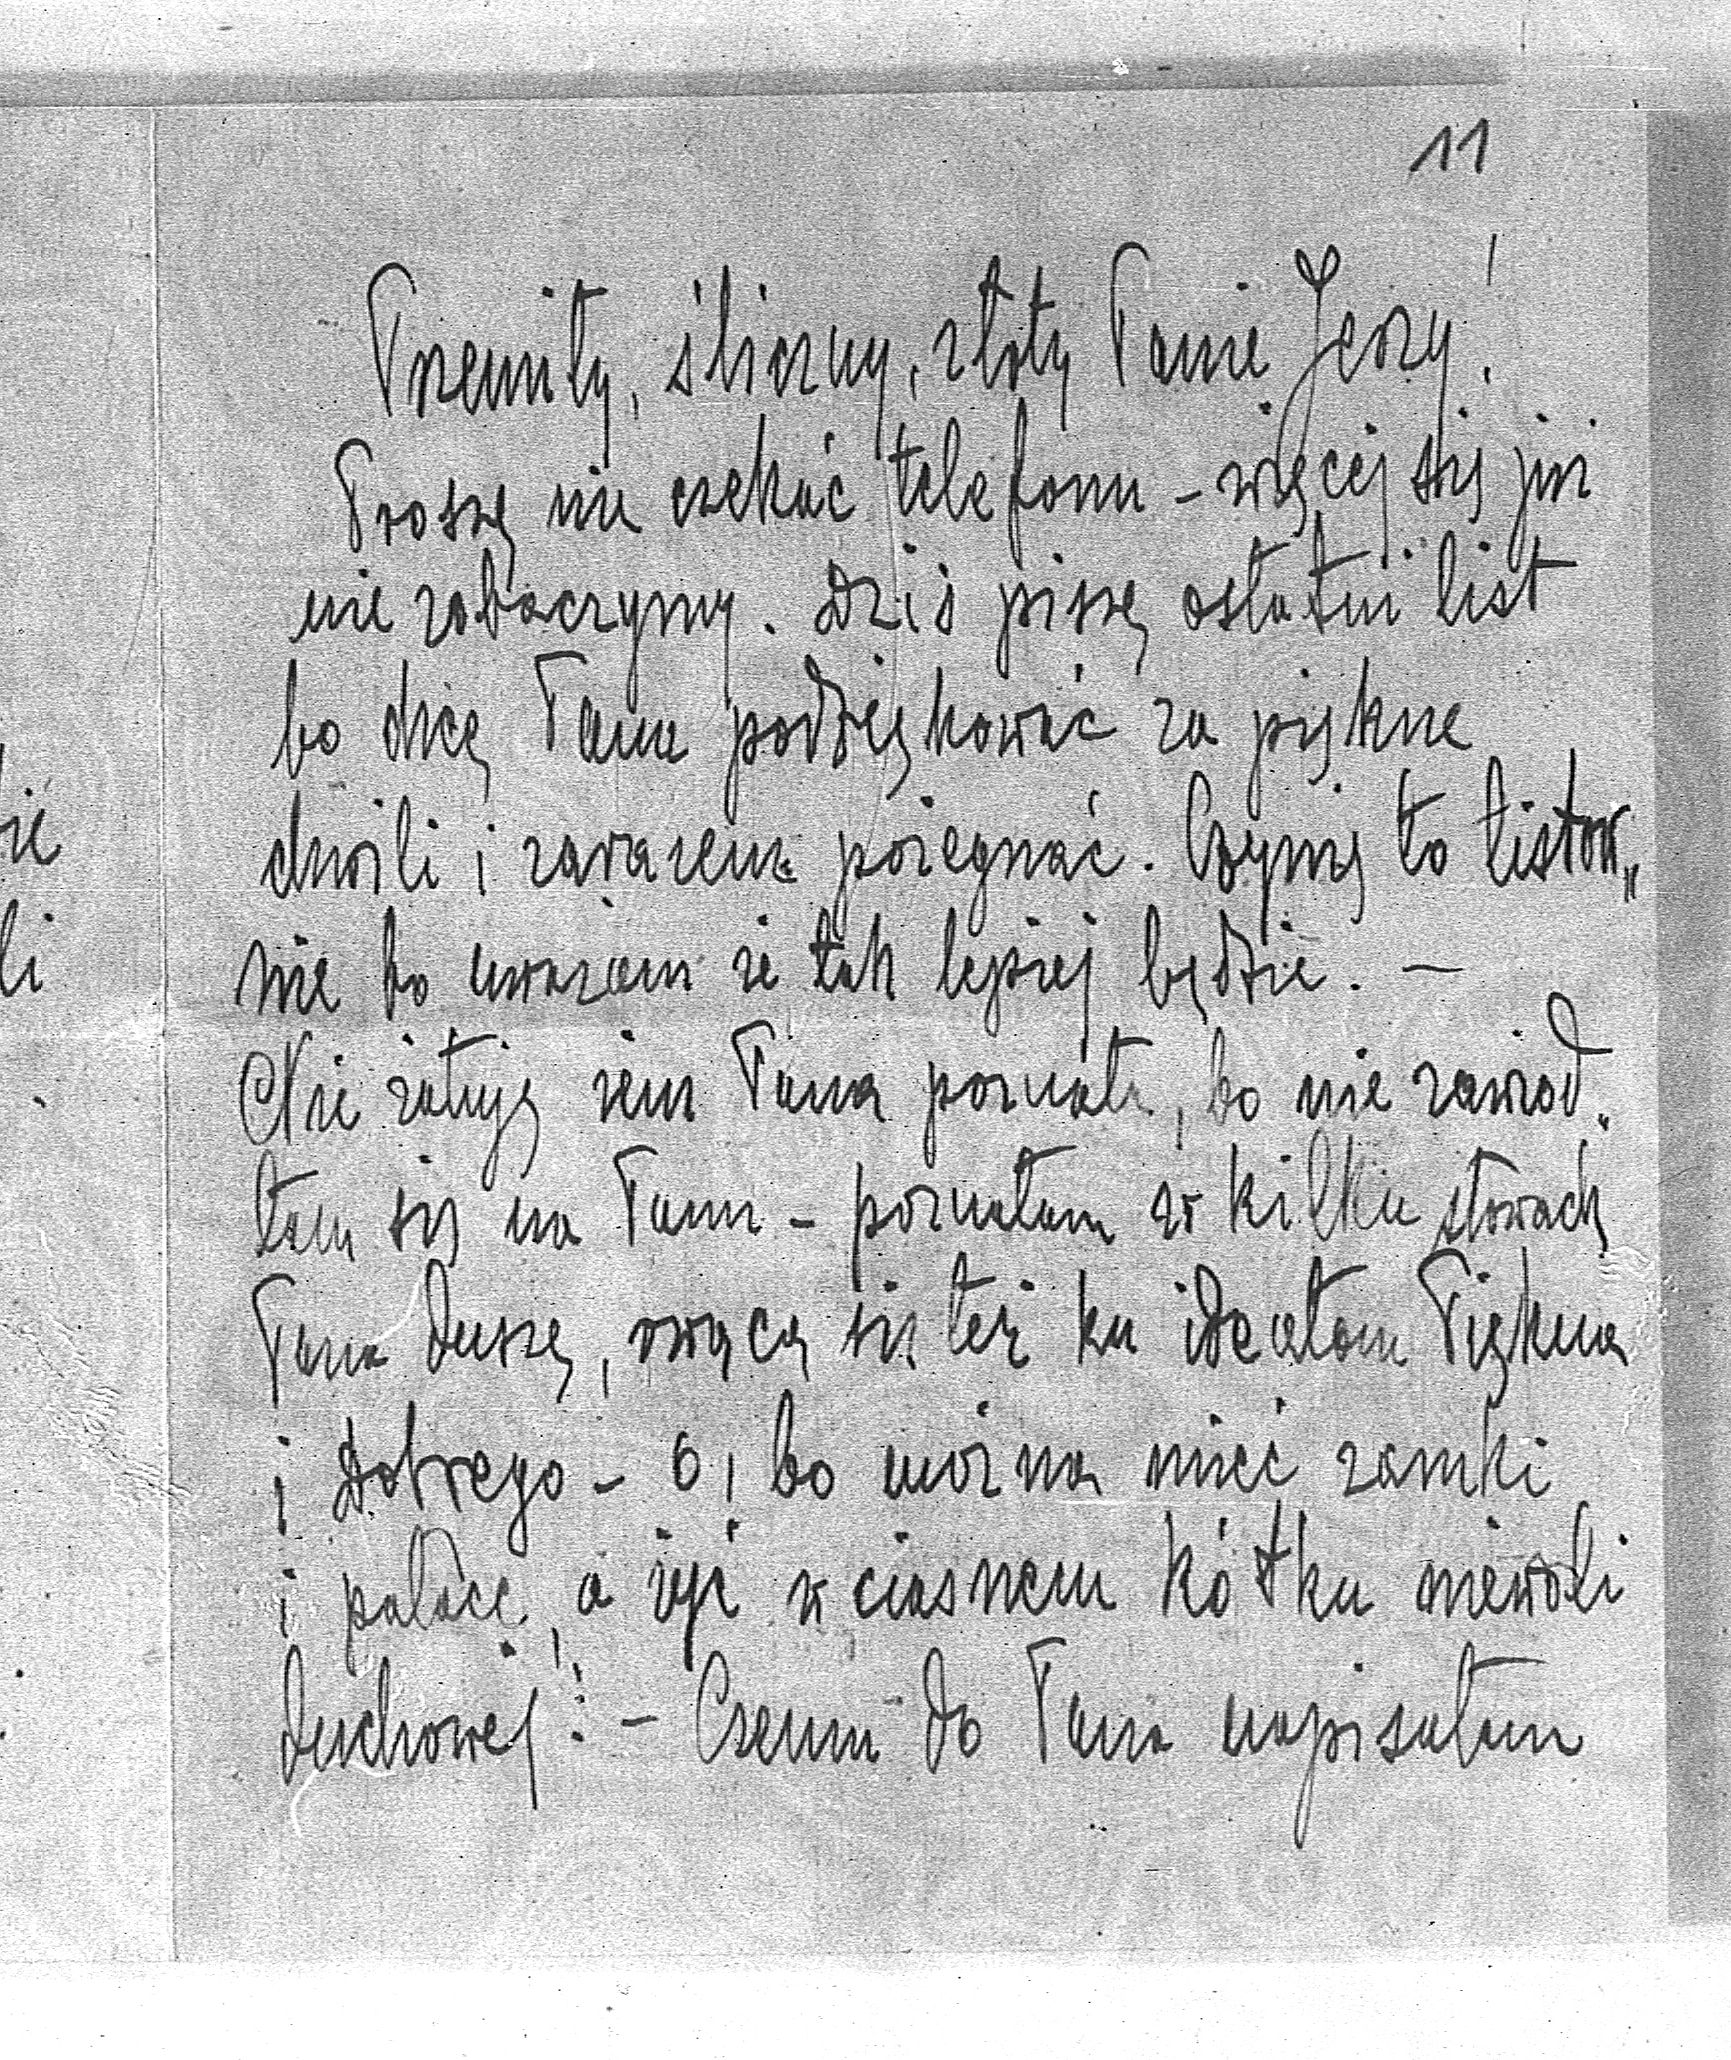 11
Przemiły, śliczny, złoty Panie Jerzy!
Proszę nie czekać telefonu – więcej się już
nie zobaczymy. Dziś piszę ostatni list
bo chcę Panu podziękować za piękne
chwili i zarazem pożegnać. Czynię to listow„
nie bo uważam że tak lepiej będzie. –
Nie żałuję żem Pana poznała, bo nie zawiod„
łam się na Panu – poznałam w kilku słowach
Pana duszę, rwącą się też ku ideałom Piękna
i Dobrego – o, bo można mieć zamki
i pałace, a żyć w ciasnem kółku niewoli
duchowej! – Czemu do Pana napisałam
że
li